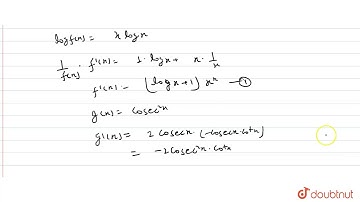 log f(x) = x log x
1/f(x) · f'(x) = 1 · log x + x · 1/x
f'(x) = (log x + 1) x^x — ①
g(x) = cosec²x
g'(x) = 2 cosec x · (-cosec x · cot x)
= -2 cosec²x · cot x
doubtnut